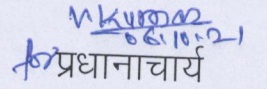 06.10.21
for प्रधानाचार्य